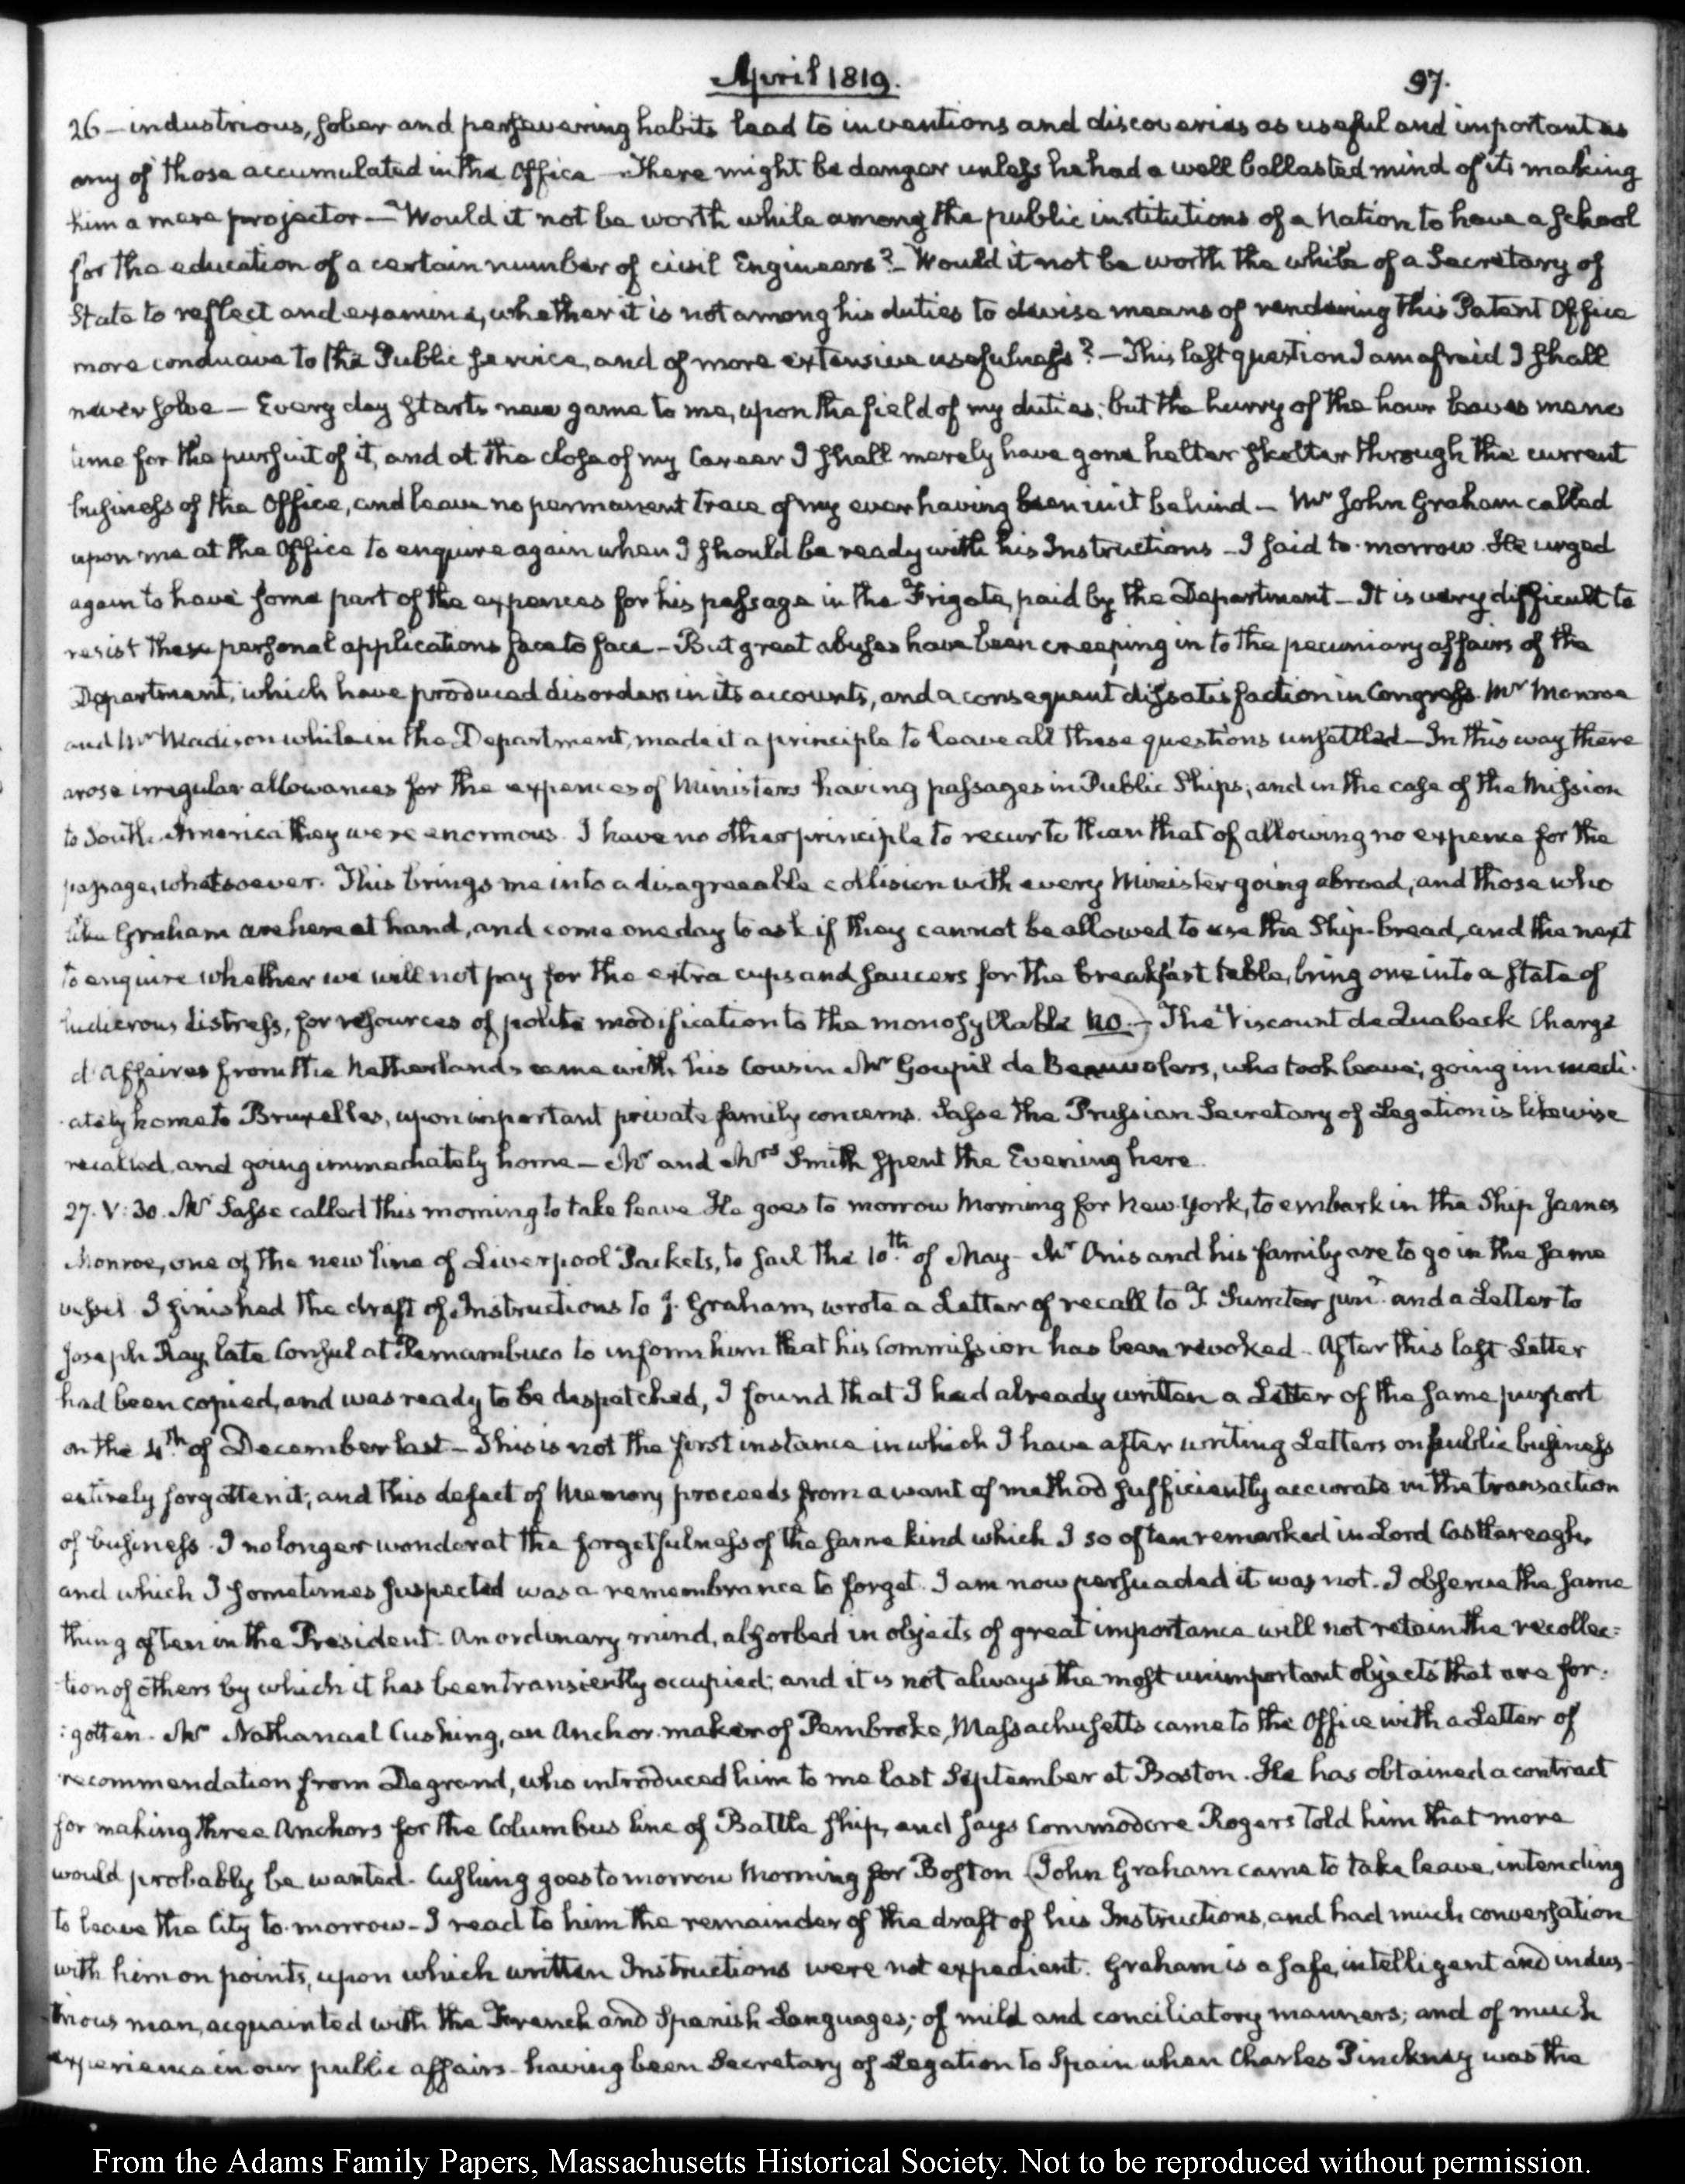 April 1819.
97.
26 — industrious, sober and persevering habits lead to inventions and discoveries as useful and important as
any of those accumulated in the Office — There might be danger unless he had a well ballasted mind of its making
him a mere projector — Would it not be worth while among the public institutions of a Nation to have a School
for the education of a certain number of civil Engineers? — Would it not be worth the while of a Secretary of
State to reflect and examine, whether it is not among his duties to devise means of rendering this Patent Office
more conducive to the Public service, and of more extensive usefulness? — This last question I am afraid I shall
never solve — Every day starts new game to me, upon the field of my duties; but the hurry of the hour leaves me no
time for the pursuit of it, and at the close of my Career I shall merely have gone helter skelter through the current
business of the Office, and leave no permanent trace of my ever having been in it behind — Mr. John Graham called
upon me at the Office to enquire again when I should be ready with his Instructions — I said to-morrow. He urged
again to have some part of the expences for his passage in the Frigate, paid by the Department — It is very difficult to
resist these personal applications face to face — But great abuses have been creeping in to the pecuniary affairs of the
Department, which have produced disorders in its accounts, and a consequent dissatisfaction in Congress. Mr. Monroe
and Mr. Madison while in the Department, made it a principle to leave all these questions unsettled — In this way there
arose irregular allowances for the expences of Ministers having passages in Public Ships; and in the case of the Mission
to South-America they were enormous. I have no other principle to recur to than that of allowing no expence for the
passage, whatsoever. This brings me into a disagreeable collision with every Minister going abroad, and those who
like Graham are here at hand, and come one day to ask if they cannot be allowed to use the Ship-bread, and the next
to enquire whether we will not pay for the extra cups and saucers for the breakfast table, bring one into a state of
ludicrous distress, for resources of polite modification to the monosyllable no. — The Viscount de Quaback Chargé
d'Affaires from the Netherlands came with his Cousin Mr. Goupil de Beauvolers, who took leave; going immedi-
-ately home to Bruxelles, upon important private family concerns. Sasse the Prussian Secretary of Legation is likewise
recalled, and going immediately home — Mr. and Mrs. Smith spent the Evening here.
27. V: 30. Mr. Sasse called this morning to take leave. He goes to morrow Morning for New-York, to embark in the Ship James
Monroe, one of the new line of Liverpool Packets, to sail the 10th. of May — Mr. Onis and his family are to go in the same
vessel. I finished the draft of Instructions to J. Graham, wrote a Letter of recall to T. Sumter junr. and a Letter to
Joseph Ray, late Consul at Pernambuco to inform him that his Commission has been revoked — After this last Letter
had been copied, and was ready to be despatched, I found that I had already written a Letter of the same purport
on the 4th. of December last — This is not the first instance in which I have after writing Letters on public business
entirely forgotten it; and this defect of Memory proceeds from a want of method sufficiently accurate in the transaction
of business. I no longer wonder at the forgetfulness of the same kind which I so often remarked in Lord Castlereagh,
and which I sometimes suspected was a remembrance to forget. I am now persuaded it was not. I observe the same
thing often in the President. An ordinary mind, absorbed in objects of great importance will not retain the recollec=
tion of others by which it has been transiently occupied; and it is not always the most unimportant objects that are for-
:gotten. Mr. Nathanael Cushing, an Anchor-maker of Pembroke, Massachusetts came to the Office with a Letter of
recommendation from Degrand, who introduced him to me last September at Boston. He has obtained a contract
for making three Anchors for the Columbus line of Battle ship, and says Commodore Rogers told him that more
would probably be wanted. Cushing goes to morrow Morning for Boston (John Graham came to take leave, intending
to leave the City to-morrow — I read to him the remainder of the draft of his Instructions, and had much conversation
with him on points, upon which written Instructions were not expedient. Graham is a safe, intelligent and indus-
trious man, acquainted with the French and Spanish Languages; of mild and conciliatory manners; and of much
experience in our public affairs — having been Secretary of Legation to Spain when Charles Pinckney was the
From the Adams Family Papers, Massachusetts Historical Society. Not to be reproduced without permission.